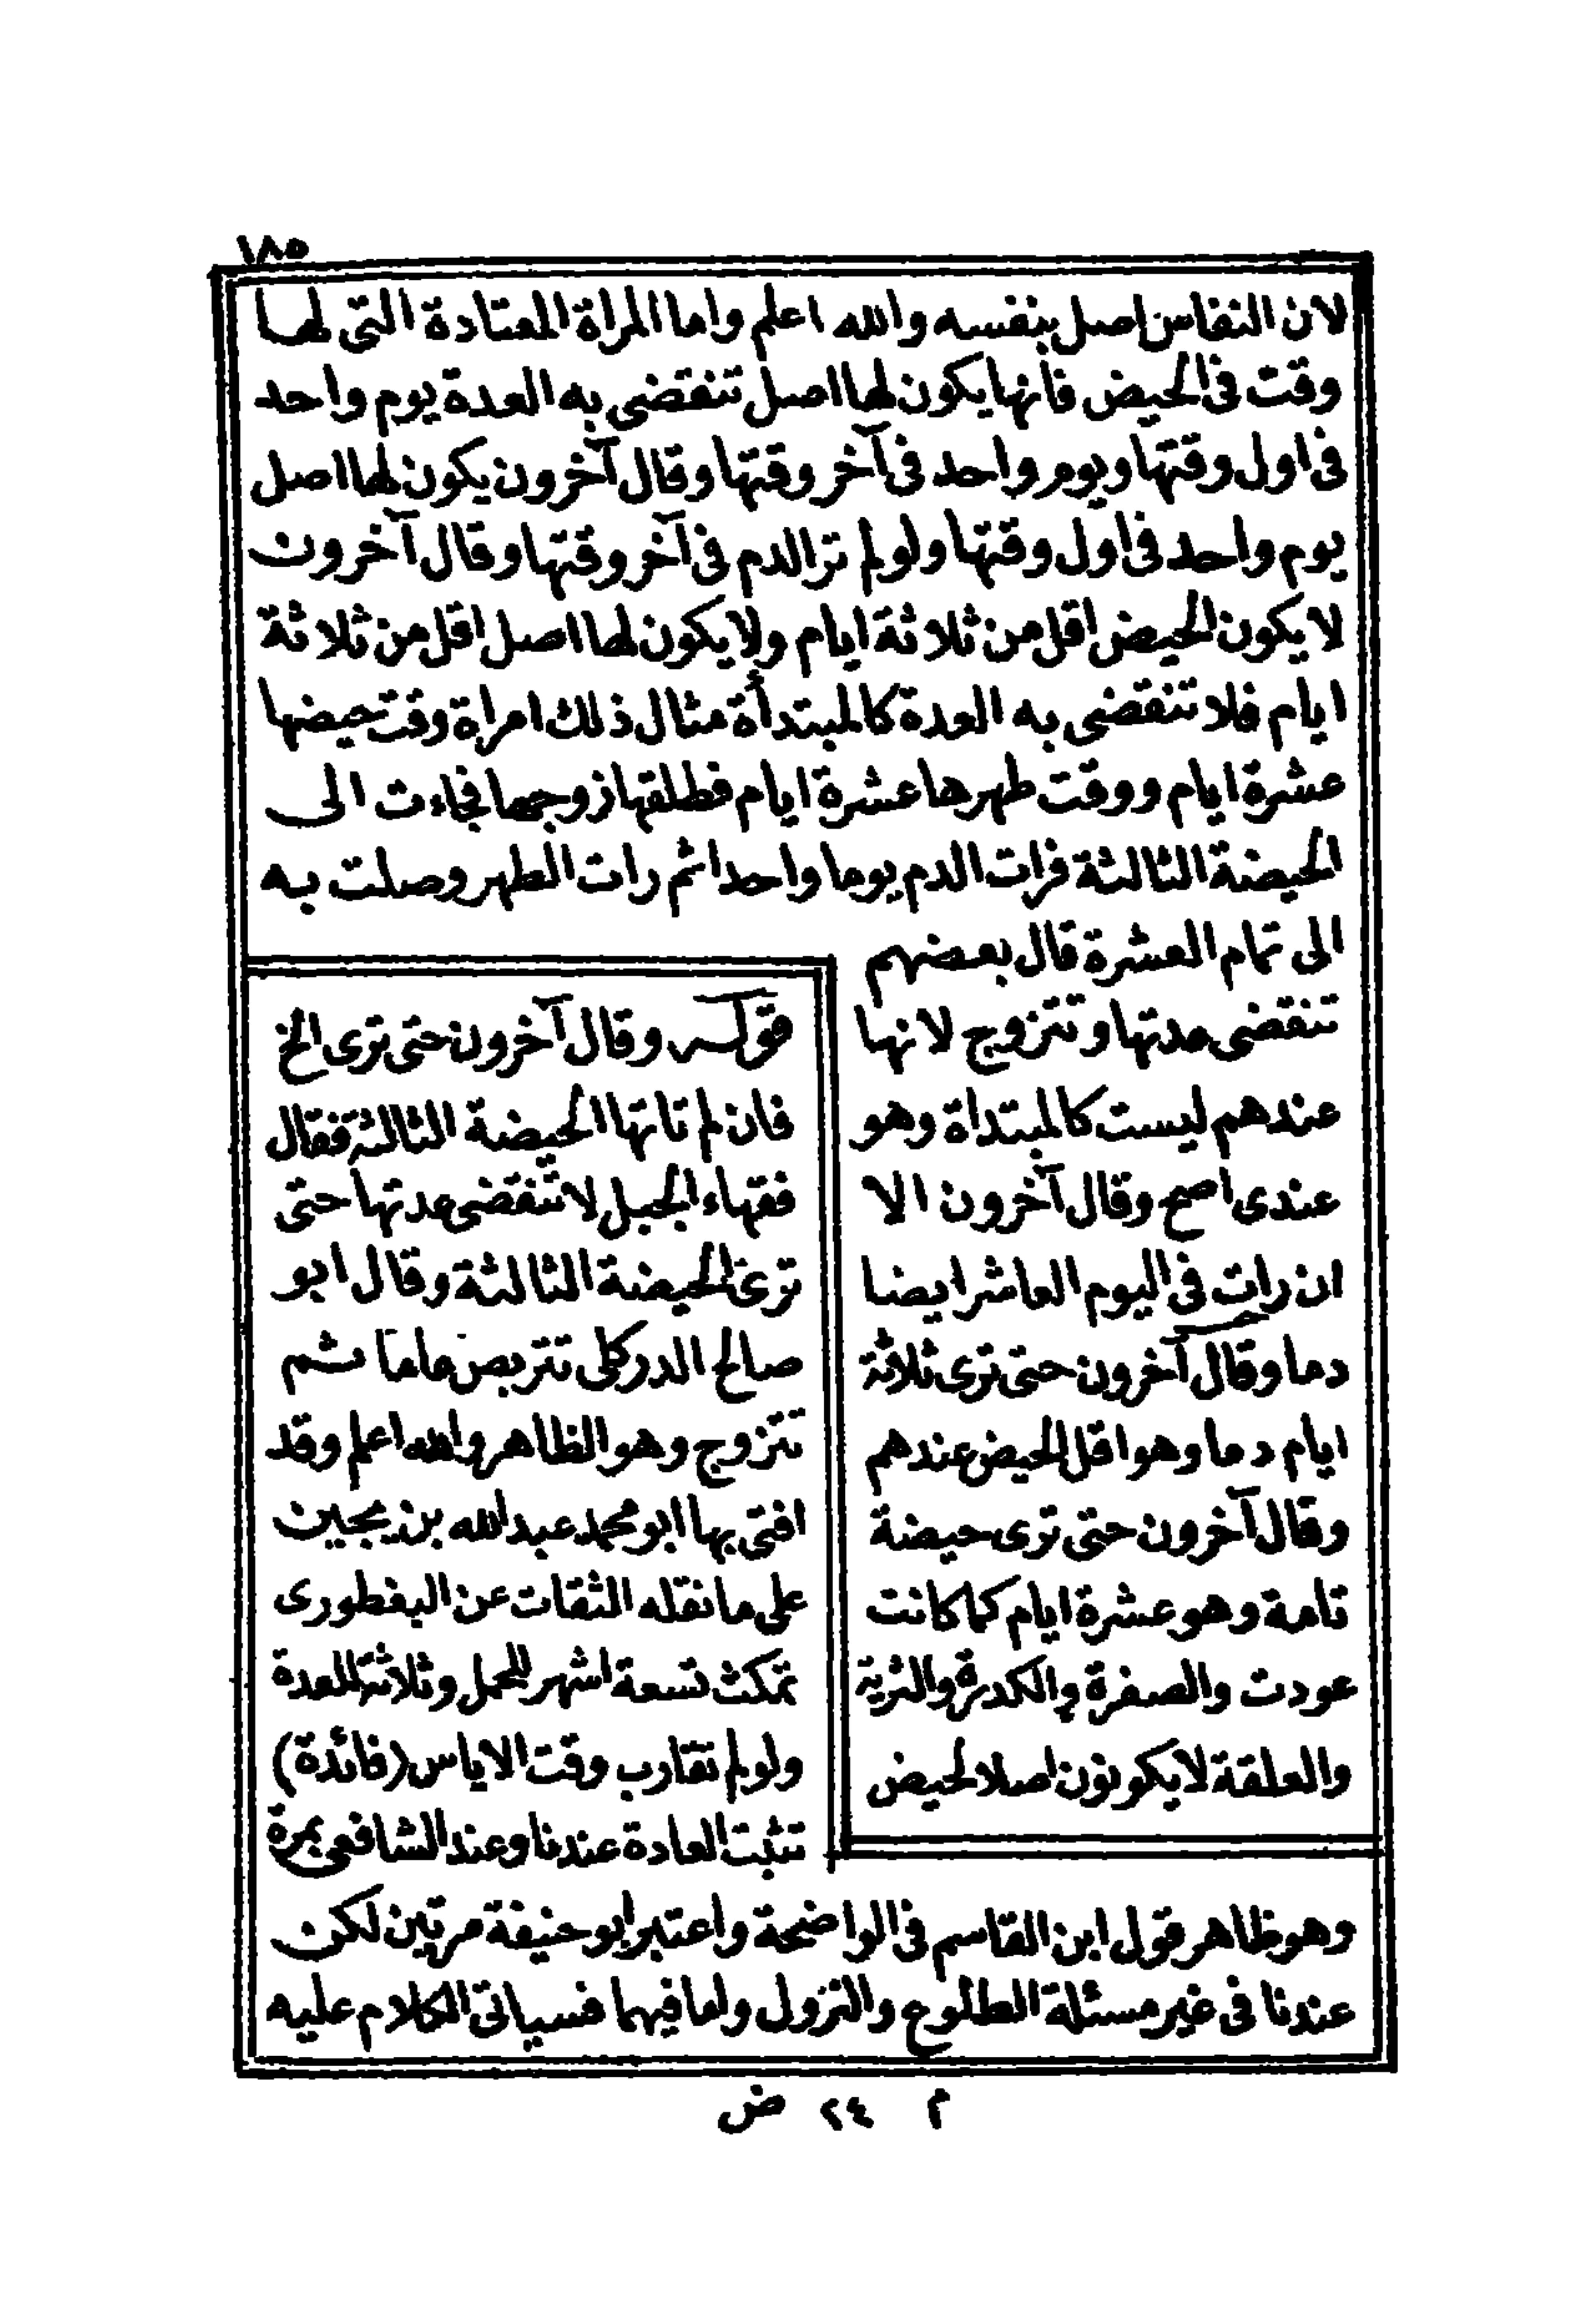 ١٨٥
لان النفاس اصل بنفسه والله اعلم واما المراة المعتادة التى لها
وقت فى الحيض فانها يكون لها اصل تنقضى به العدة يوم واحد
فى اول وقتها ويوم واحد فى آخر وقتها وقال آخرون يكون لها اصل
يوم واحد فى اول وقتها ولو لم تر الدم فى آخر وقتها وقال آخرون
لا يكون الحيض اقل من ثلاثة ايام ولا يكون لها اصل اقل من ثلاثة
ايام فلا تنقضى به العدة كالمبتدأة مثال ذلك امراة وقت حيضها
عشرة ايام ووقت طهرها عشرة ايام فطلقها زوجها فجاءت الى
الحيضة الثالثة فرات الدم يوما واحدا ثم رات الطهر وصلت به
الى تمام العشرة قال بعضهم
تنقضى عدتها وتتزوج لانها
عندهم ليست كالمبتداة وهو
عندى اصح وقال آخرون الا
ان رات فى اليوم العاشر ايضا
دما وقال آخرون حتى ترى ثلاثة
ايام دما وهو اقل الحيض عندهم
وقال آخرون حتى ترى حيضة
تامة وهو عشرة ايام كما كانت
عودت والصفرة والكدرة والترية
والعلقة لا يكونون اصلا لحيض
قوله وقال آخرون حتى ترى الخ
فان لم تاتها الحيضة الثالثة فقال
فقهاء الجبل لا تنقضى عدتها حتى
ترى الحيضة الثالثة وقال ابو
صالح الدركلى تتربص عاما ثم
تتزوج وهو الظاهر والله اعلم وقد
افتى بها ابو محمد عبد الله بن مجين
على ما نقله الثقات عن البغطورى
تمكث تسعة اشهر للحمل وثلاثة للعدة
ولو لم تقارب وقت الاياس (فائدة)
تثبت العادة عندنا وعند الشافعى بمرة
وهو ظاهر قول ابن القاسم فى الواضحة واعتبر ابو حنيفة مرتين لكن
عندنا فى غير مسئلة الطلوع والنزول واما فيهما فسياتى الكلام عليه
م ٢٤ ض